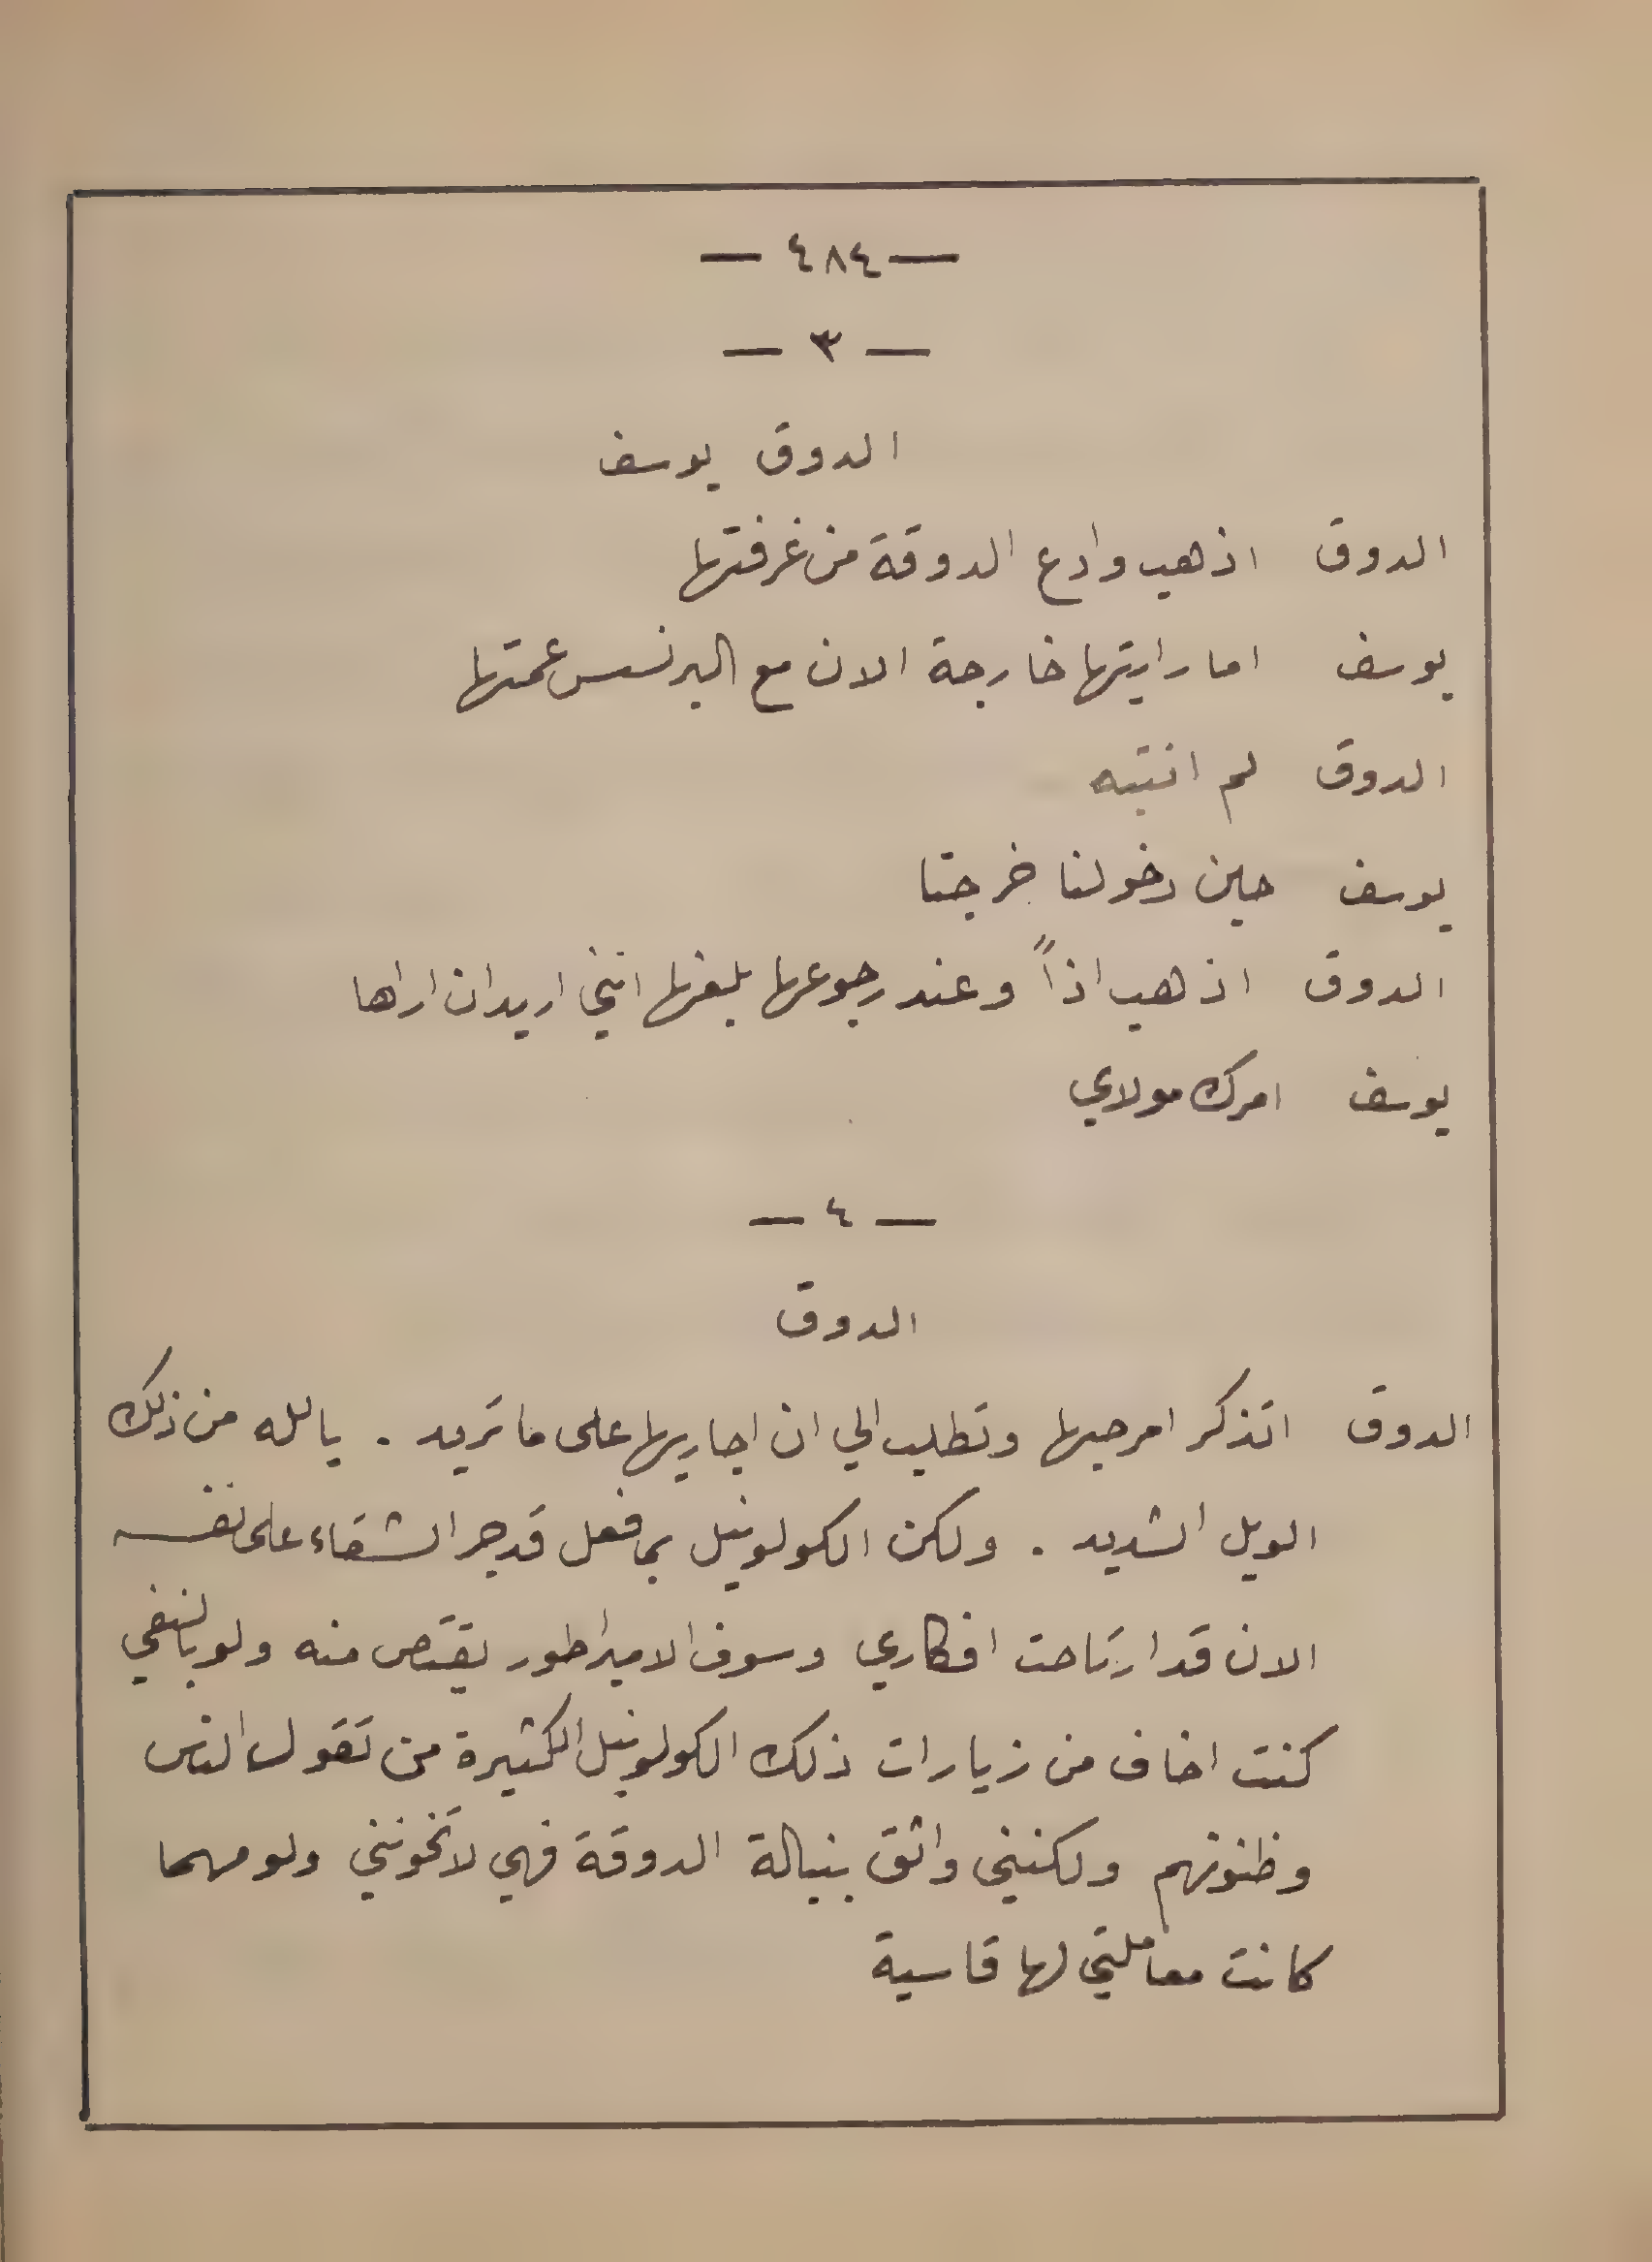 — ٤٨٤ —
— ٣ —
الدوق يوسف
الدوق اذهب وادع الدوقة من غرفتها
يوسف اما رايتها خارجة الان مع البرنسس عمتها
الدوق لم انتبه
يوسف حين دخولنا خرجتا
الدوق اذهب اذاً وعند رجوعها بلغها انني اريد ان اراها
يوسف امرك مولاي
— ٤ —
الدوق
الدوق اتذكر امر حبها وتطلب الي ان اجاريها على ما تريد . يالله من ذلك
الويل الشديد . ولكن الكولونيل بما فعل قد جر الشقاء على نفسه
الان قد ارتاحت افكاري وسوف الامبراطور يقتص منه ولو بالنفي
كنت اخاف من زيارات ذلك الكولونيل الكثيرة من تقول الناس
وظنونهم ولكنني واثق بنبالة الدوقة فهي لا تخونني ولو مهما
كانت معاملتي لها قاسية